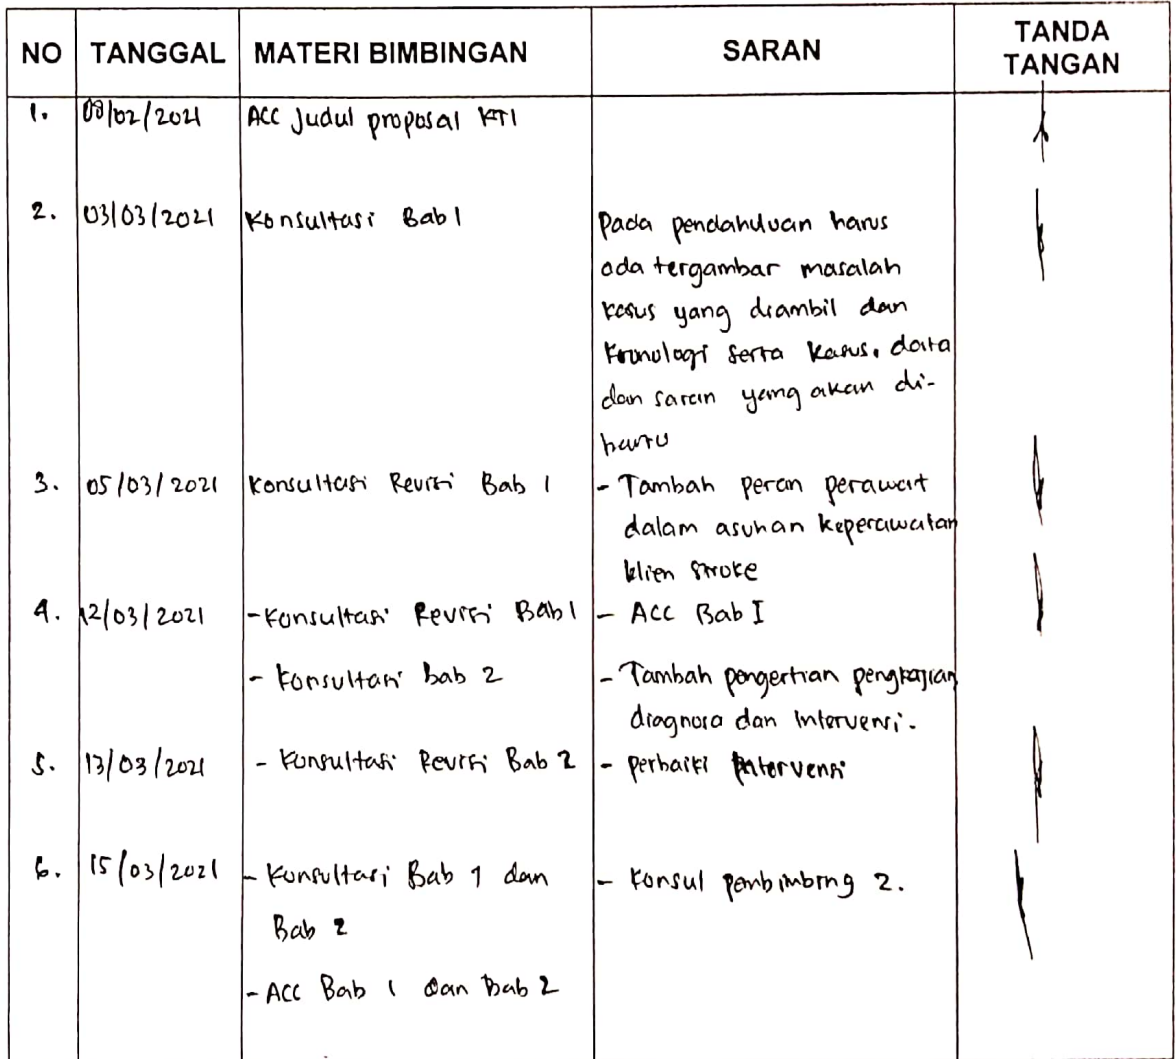 NO TANGGAL MATERI BIMBINGAN SARAN TANDA TANGAN
1. 08/02/2021 ACC Judul proposal KTI
2. 03/03/2021 Konsultasi Bab 1 Pada pendahuluan harus
ada tergambar masalah
kasus yang diambil dan
Kronologi serta Kasus, data
dan saran yang akan di-
3. 05/03/2021 Konsultasi Revisi Bab 1 - Tambah peran perawat
dalam asuhan keperawatan
klien stroke
4. 12/03/2021 - Konsultasi Revisi Bab 1 - ACC Bab I
- Konsultasi bab 2 - Tambah pengertian pengkajian
diagnosa dan Intervensi.
5. 13/03/2021 - Konsultasi Revisi Bab 2 - perbaiki Intervensi
6. 15/03/2021 - Konsultasi Bab 1 dan - Konsul pembimbing 2.
Bab 2
- ACC Bab 1 dan Bab 2